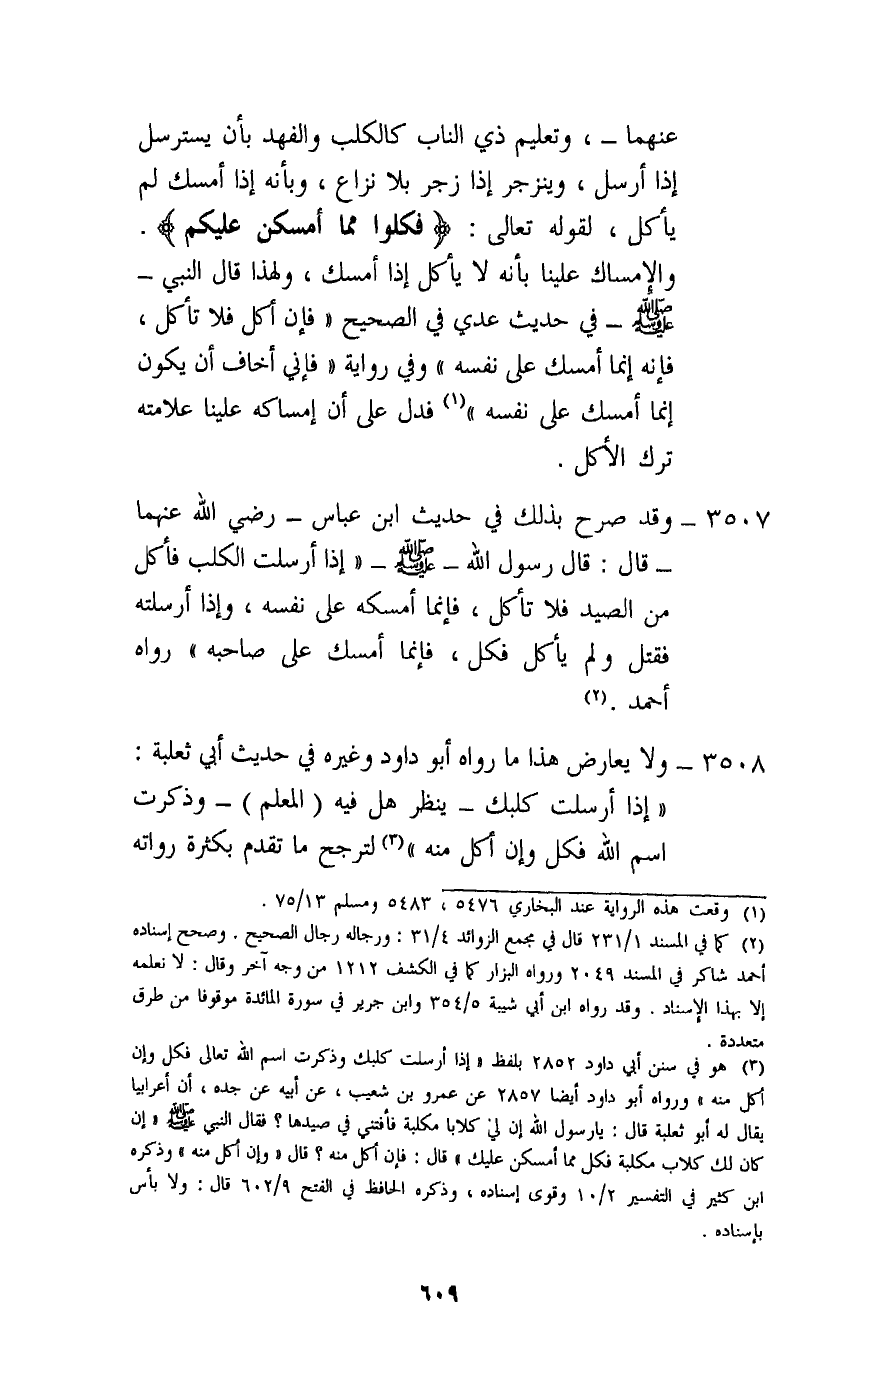 عنهما ــ ، وتعليم ذي الناب كالكلب والفهد بأن يسترسل
إذا أرسل ، وينزجر إذا زجر بلا نزاع ، وبأنه إذا أمسك لم
يأكل ، لقوله تعالى : ﴿ فكلوا مما أمسكن عليكم ﴾ .
والإمساك علينا بأنه لا يأكل إذا أمسك ، ولهذا قال النبي ــ
ﷺ ــ في حديث عدي في الصحيح « فإن أكل فلا تأكل ،
فإنه إنما أمسك على نفسه » وفي رواية « فإني أخاف أن يكون
إنما أمسك على نفسه »(١) فدل على أن إمساكه علينا علامته
ترك الأكل .
٣٥٠٧ ــ وقد صرح بذلك في حديث ابن عباس ــ رضي الله عنهما
ــ قال : قال رسول الله ــ ﷺ ــ « إذا أرسلت الكلب فأكل
من الصيد فلا تأكل ، فإنما أمسكه على نفسه ، وإذا أرسلته
فقتل ولم يأكل فكل ، فإنما أمسك على صاحبه » رواه
أحمد .(٢)
٣٥٠٨ ــ ولا يعارض هذا ما رواه أبو داود وغيره في حديث أبي ثعلبة :
« إذا أرسلت كلبك ــ ينظر هل فيه ( المعلم ) ــ وذكرت
اسم الله فكل وإن أكل منه »(٣) لترجح ما تقدم بكثرة رواته
(١) وقعت هذه الرواية عند البخاري ٥٤٧٦ ، ٥٤٨٣ ومسلم ٧٥/١٣ .
(٢) كما في المسند ٢٣١/١ قال في مجمع الزوائد ٣١/٤ : ورجاله رجال الصحيح . وصحح إسناده
أحمد شاكر في المسند ٢٠٤٩ ورواه البزار كما في الكشف ١٢١٢ من وجه آخر وقال : لا نعلمه
إلا بهذا الإسناد . وقد رواه ابن أبي شيبة ٣٥٤/٥ وابن جرير في سورة المائدة موقوفا من طرق
متعددة .
(٣) هو في سنن أبي داود ٢٨٥٢ بلفظ « إذا أرسلت كلبك وذكرت اسم الله تعالى فكل وإن
أكل منه » ورواه أبو داود أيضا ٢٨٥٧ عن عمرو بن شعيب ، عن أبيه عن جده ، أن أعرابيا
يقال له أبو ثعلبة قال : يارسول الله إن لي كلابا مكلبة فأفتني في صيدها ؟ فقال النبي ﷺ « إن
كان لك كلاب مكلبة فكل مما أمسكن عليك » قال : فإن أكل منه ؟ قال « وإن أكل منه » وذكره
ابن كثير في التفسير ١٠/٢ وقوى إسناده ، وذكره الحافظ في الفتح ٦٠٢/٩ قال : ولا بأس
بإسناده .
٦٠٩